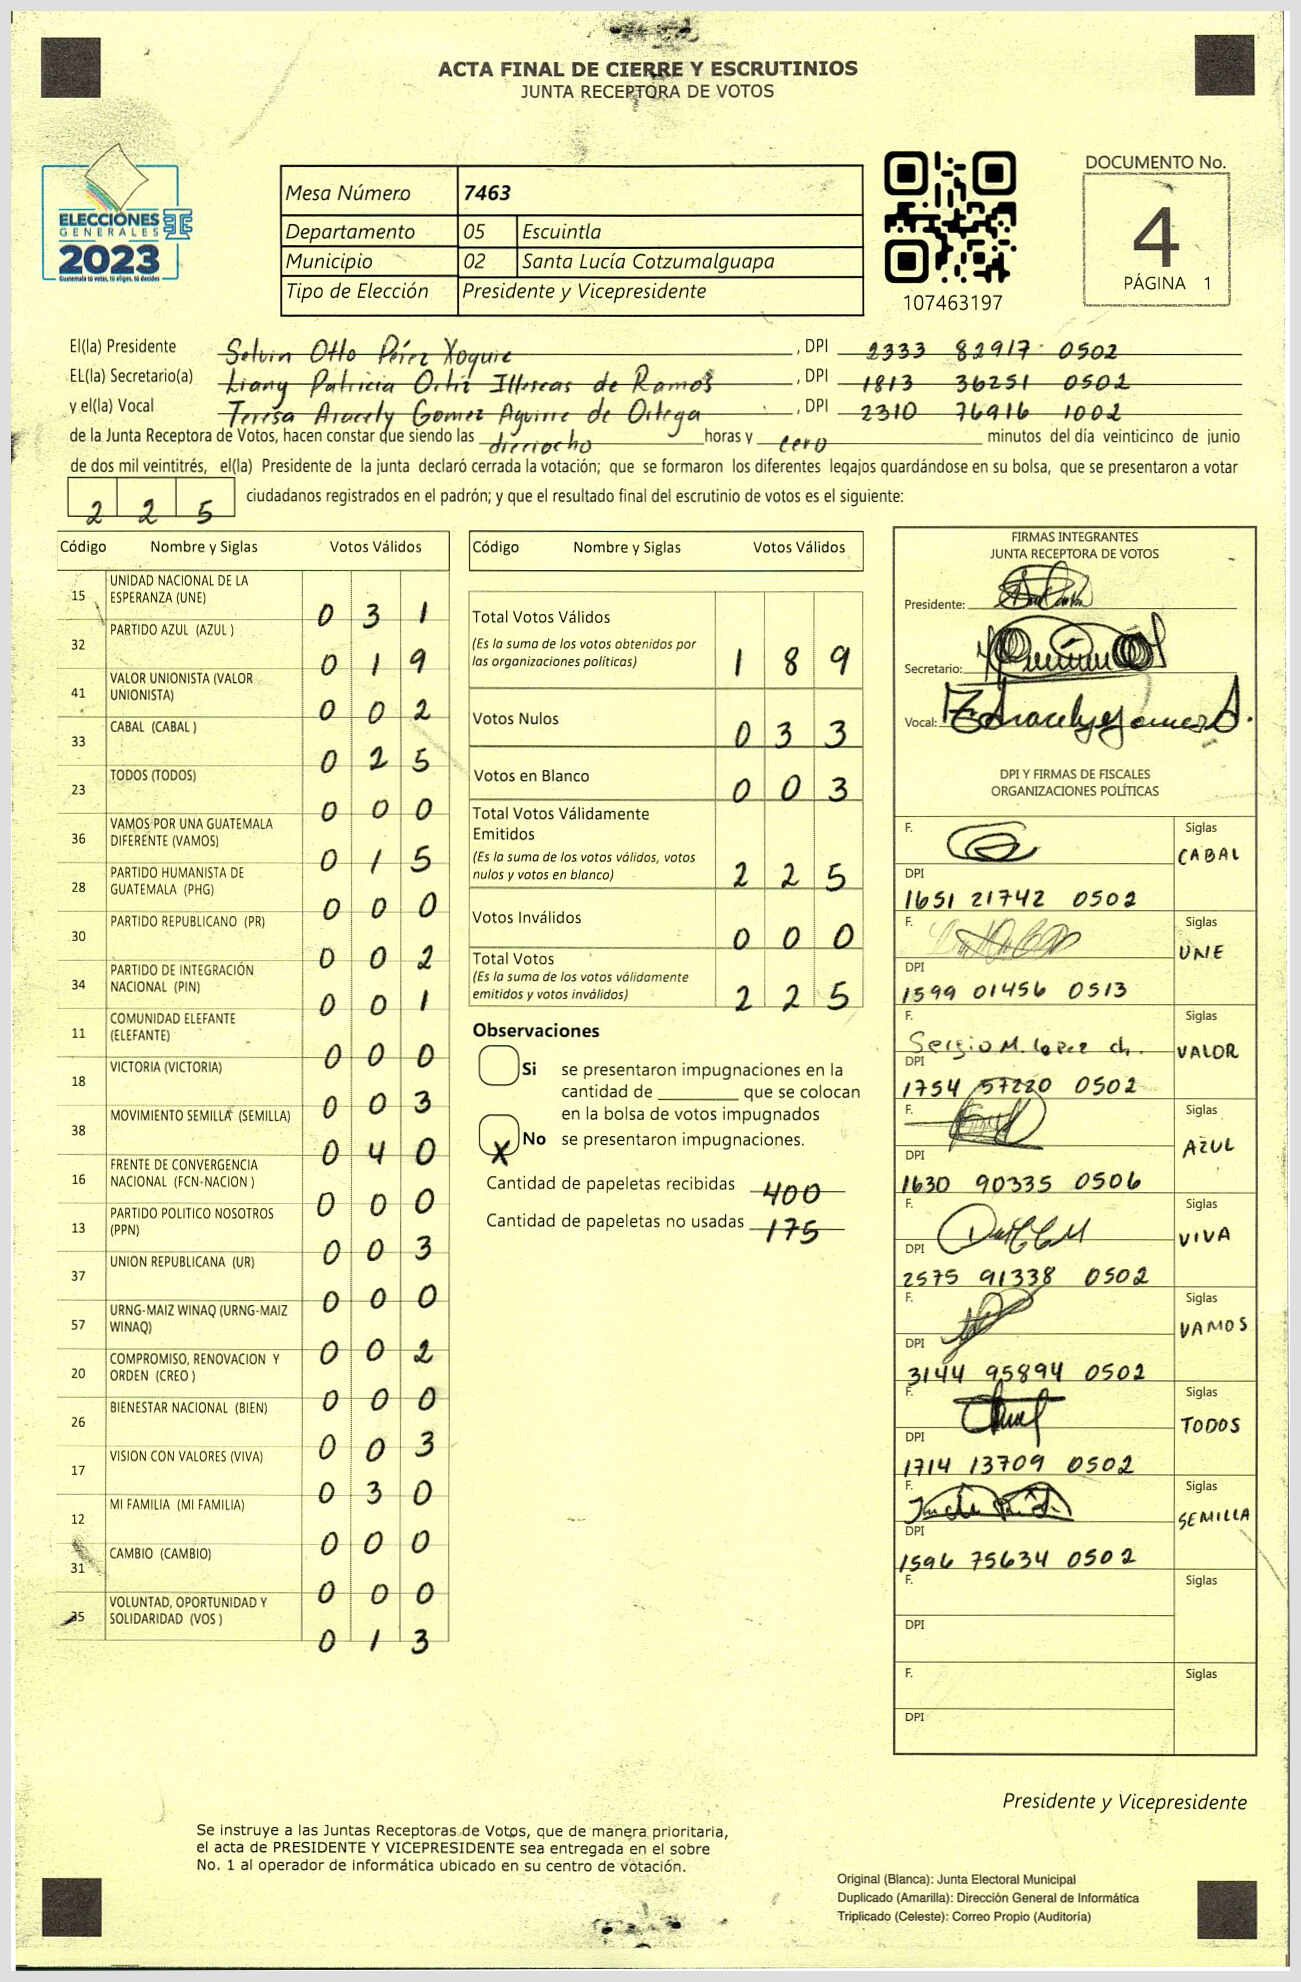 ACTA FINAL DE CIERRE Y ESCRUTINIOS
JUNTA RECEPTORA DE VOTOS
ELECCIONES
GENERALES
2023
Guatemala tú votas, tú eliges, tú decides
Mesa Número 7463
Departamento 05 Escuintla
Municipio 02 Santa Lucía Cotzumalguapa
Tipo de Elección Presidente y Vicepresidente
107463197
DOCUMENTO No.
4
PÁGINA 1
El(la) Presidente Selvin Otto Pérez Xoquic, DPI 2333 82917 0502
EL(la) Secretario(a) Liany Patricia Ortiz Illescas de Ramos, DPI 1813 36251 0502
y el(la) Vocal Teresa Aracely Gomez Aguirre de Ortega, DPI 2310 76916 1002
de la Junta Receptora de Votos, hacen constar que siendo las dieciocho horas y cero minutos del día veinticinco de junio
de dos mil veintitrés, el(la) Presidente de la junta declaró cerrada la votación; que se formaron los diferentes legajos guardándose en su bolsa, que se presentaron a votar
2 2 5 ciudadanos registrados en el padrón; y que el resultado final del escrutinio de votos es el siguiente:
Código Nombre y Siglas Votos Válidos
15 UNIDAD NACIONAL DE LA
ESPERANZA (UNE) 0 3 1
32 PARTIDO AZUL (AZUL ) 0 1 9
41 VALOR UNIONISTA (VALOR
UNIONISTA) 0 0 2
33 CABAL (CABAL ) 0 2 5
23 TODOS (TODOS) 0 0 0
36 VAMOS POR UNA GUATEMALA
DIFERENTE (VAMOS) 0 1 5
28 PARTIDO HUMANISTA DE
GUATEMALA (PHG) 0 0 0
30 PARTIDO REPUBLICANO (PR) 0 0 2
34 PARTIDO DE INTEGRACIÓN
NACIONAL (PIN) 0 0 1
11 COMUNIDAD ELEFANTE
(ELEFANTE) 0 0 0
18 VICTORIA (VICTORIA) 0 0 3
38 MOVIMIENTO SEMILLA (SEMILLA) 0 4 0
16 FRENTE DE CONVERGENCIA
NACIONAL (FCN-NACION ) 0 0 0
13 PARTIDO POLITICO NOSOTROS
(PPN) 0 0 3
37 UNION REPUBLICANA (UR) 0 0 0
57 URNG-MAIZ WINAQ (URNG-MAIZ
WINAQ) 0 0 2
20 COMPROMISO, RENOVACION Y
ORDEN (CREO ) 0 0 0
26 BIENESTAR NACIONAL (BIEN) 0 0 3
17 VISION CON VALORES (VIVA) 0 3 0
12 MI FAMILIA (MI FAMILIA) 0 0 0
31 CAMBIO (CAMBIO) 0 0 0
35 VOLUNTAD, OPORTUNIDAD Y
SOLIDARIDAD (VOS ) 0 1 3
Código Nombre y Siglas Votos Válidos
Total Votos Válidos
(Es la suma de los votos obtenidos por
las organizaciones políticas) 1 8 9
Votos Nulos 0 3 3
Votos en Blanco 0 0 3
Total Votos Válidamente
Emitidos
(Es la suma de los votos válidos, votos
nulos y votos en blanco) 2 2 5
Votos Inválidos 0 0 0
Total Votos
(Es la suma de los votos válidamente
emitidos y votos inválidos) 2 2 5
Observaciones
Si se presentaron impugnaciones en la
cantidad de ________ que se colocan
en la bolsa de votos impugnados
X No se presentaron impugnaciones.
Cantidad de papeletas recibidas 400
Cantidad de papeletas no usadas 175
FIRMAS INTEGRANTES
JUNTA RECEPTORA DE VOTOS
Presidente:
Secretario:
Vocal:
DPI Y FIRMAS DE FISCALES
ORGANIZACIONES POLÍTICAS
F. Siglas
CABAL
DPI
1651 21742 0502
F. Siglas
UNE
DPI
1599 01456 0513
F. Siglas
Sergio M. Lopez ch. VALOR
DPI
1754 57220 0502
F. Siglas
AZUL
DPI
1630 90335 0506
F. Siglas
VIVA
DPI
2575 91338 0502
F. Siglas
VAMOS
DPI
3144 95894 0502
F. Siglas
TODOS
DPI
1714 13709 0502
F. Siglas
SEMILLA
DPI
1596 75634 0502
F. Siglas
DPI
F. Siglas
DPI
Presidente y Vicepresidente
Se instruye a las Juntas Receptoras de Votos, que de manera prioritaria,
el acta de PRESIDENTE Y VICEPRESIDENTE sea entregada en el sobre
No. 1 al operador de informática ubicado en su centro de votación.
Original (Blanca): Junta Electoral Municipal
Duplicado (Amarilla): Dirección General de Informática
Triplicado (Celeste): Correo Propio (Auditoría)